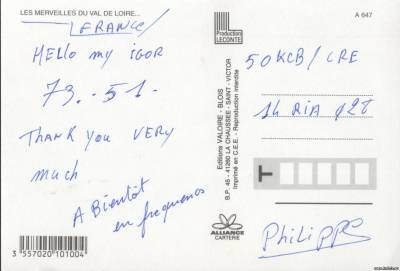 LES MERVEILLES DU VAL DE LOIRE...
FRANCE
HELLO my IGOR
73. - 51.
THANK YOU VERY
much
A Bientôt
en frequences
3557020101004
Production
LECONTE
A 647
Editions VALOIRE - BLOIS
B.P. 45 - 41260 LA CHAUSSEE - SAINT - VICTOR
Imprimé en C.E.E. - Reproduction interdite
ALLIANCE
CARTERIE
50KCB/CRE
14 RIA 028
PHILIPPE